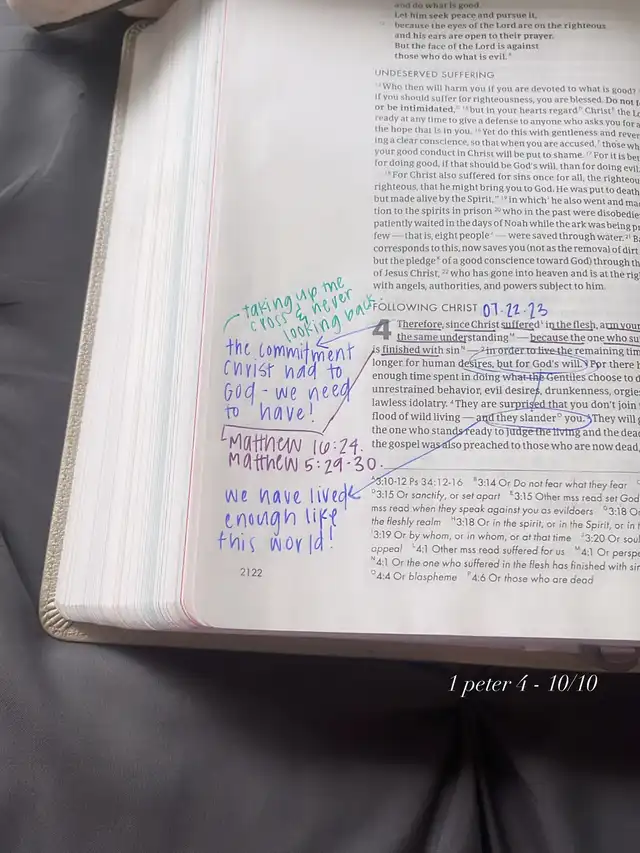 and do what is good.
Let him seek peace and pursue it,
12 because the eyes of the Lord are on the righteous
and his ears are open to their prayer.
But the face of the Lord is against
those who do what is evil.
UNDESERVED SUFFERING
13 Who then will harm you if you are devoted to what is good?
if you should suffer for righteousness, you are blessed. Do not
or be intimidated, 15 but in your hearts regard Christ the
ready at any time to give a defense to anyone who asks you for
the hope that is in you. 16 Yet do this with gentleness and
ing a clear conscience, so that when you are accused, those
your good conduct in Christ will be put to shame. 17 For it is
for doing good, if that should be God's will, than for doing evil.
18 For Christ also suffered for sins once for all, the
righteous, that he might bring you to God. He was put to death
but made alive by the Spirit, 19 in which he also went and
tion to the spirits in prison 20 who in the past were
patiently waited in the days of Noah while the ark was being
few — that is, eight people — were saved through water. 21
corresponds to this, now saves you (not as the removal of dirt
but the pledge of a good conscience toward God) through the
of Jesus Christ, 22 who has gone into heaven and is at the
with angels, authorities, and powers subject to him.
taking up the
cross & never
looking back.
FOLLOWING CHRIST 07.22.23
4 Therefore, since Christ suffered in the flesh, arm
the same understanding — because the one who
is finished with sin — 2 in order to live the remaining
longer for human desires, but for God's will. 3 For there
enough time spent in doing what the Gentiles choose to
unrestrained behavior, evil desires, drunkenness,
lawless idolatry. 4 They are surprised that you don't join
flood of wild living — and they slander you. 5 They will
the one who stands ready to judge the living and the
the gospel was also preached to those who are now dead,
the commitment
Christ had to
God - we need
to have!
Matthew 16:24.
Matthew 5:29-30.
we have lived
enough like
this world!
A 3:10-12 Ps 34:12-16 B 3:14 Or Do not fear what they fear
D 3:15 Or sanctify, or set apart E 3:15 Other mss read set God
mss read when they speak against you as evildoers G 3:18
the fleshly realm H 3:18 Or in the spirit, or in the Spirit, or in
3:19 Or by whom, or in whom, or at that time 3:20 Or
appeal L 4:1 Other mss read suffered for us M 4:1 Or
N 4:1 Or the one who suffered in the flesh has finished with
O 4:4 Or blaspheme P 4:6 Or those who are dead
2122
1 peter 4 - 10/10